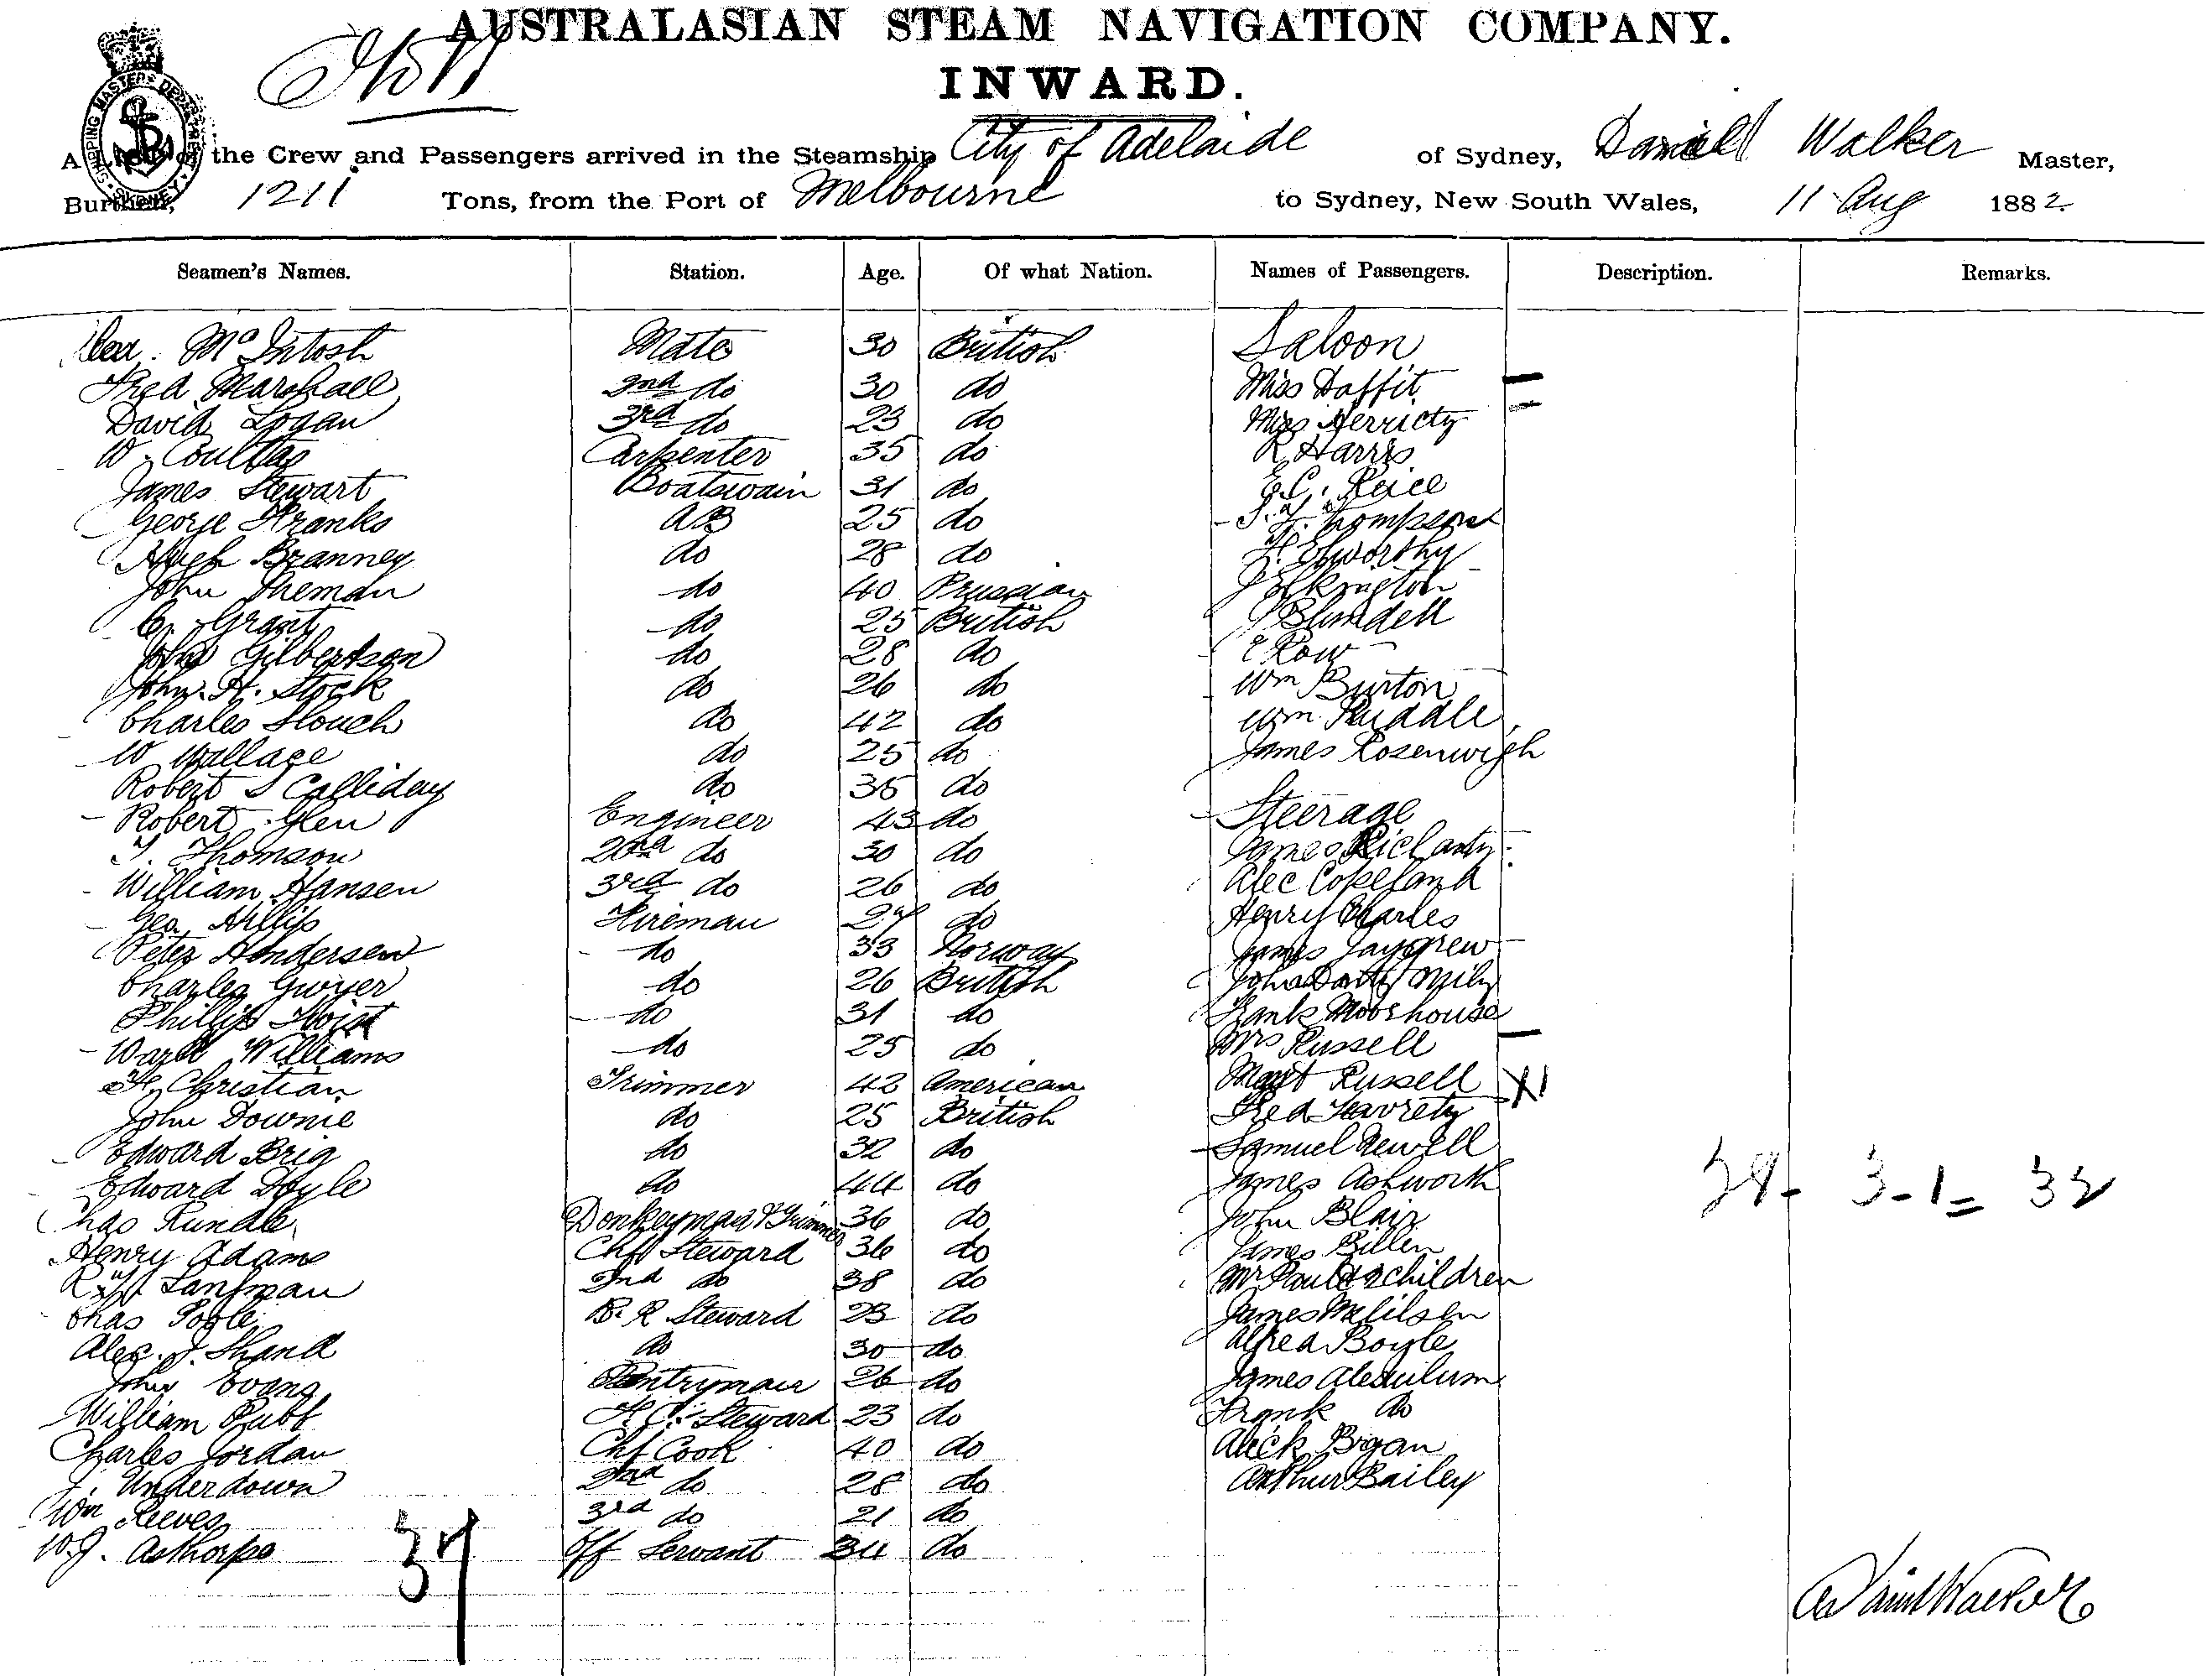 AUSTRALASIAN STEAM NAVIGATION COMPANY.
INWARD.
A List of the Crew and Passengers arrived in the Steamship City of Adelaide of Sydney, Daniel Walker Master,
Burthen, 1211 Tons, from the Port of Melbourne to Sydney, New South Wales, 11 Aug 1882
Seamen's Names. Station. Age. Of what Nation. Names of Passengers. Description. Remarks.
McIntosh Mate 30 British Saloon
Fred Marshall 2nd do 30 do Miss Daffit
David Logan 3rd do 23 do Miss Herricty
W. Coultas Carpenter 35 do R Harris
James Stewart Boatswain 31 do E.C. Reice
George Franks AB 25 do Thompson
Hugh Branney do 28 do Elworthy
John Theman do 40 Prussian Elkington
C. Grant do 25 British Blundell
John Gilbertson do 28 do E Row
John H. Stock do 26 do Wm Burton
Charles Slouch do 42 do Wm Ruddle
W Wallace do 25 do James Rosenwigh
Robert S Calliday do 35 do
Robert Glen Engineer 43 do Steerage
T. Thomson 2nd do 30 do James
William Hansen 3rd do 26 do Alec Copeland
Geo Hillis Fireman do Henry Charles
Peter Andersen do 33 Norway James Jaygrew
Charles Gwyer do 26 British John
Phillip Hoist do 31 do Frank Moorhouse
Ward Williams do 25 do Mrs Russell
H. Christian Trimmer 42 American Margt Russell X1
John Downie do 25 British Fred
Edward Brig do 32 do Samuel Newell
Edward Doyle do 44 do James Ashworth 3-1= 32
Chas Rundle Donkeyman & Trimmer 36 do John Blair
Henry Adams Chf Steward 36 do James Billen
R. Lanfman 2nd do 38 do Mr Paul & 2 children
Chas Pogle B. R Steward 23 do James
Alex. J. Shand do 30 do Alfred Boyle
John Evans Pantryman 26 do James
William Rubb F. C. Steward 23 do Frank do
Charles Jordan Chf Cook 40 do Alick Bryan
J. Underdown 2nd do 28 do Arthur Bailey
Wm Reeves 3rd do 21 do
W.J. Asthorpe Off Servant 34 do
37